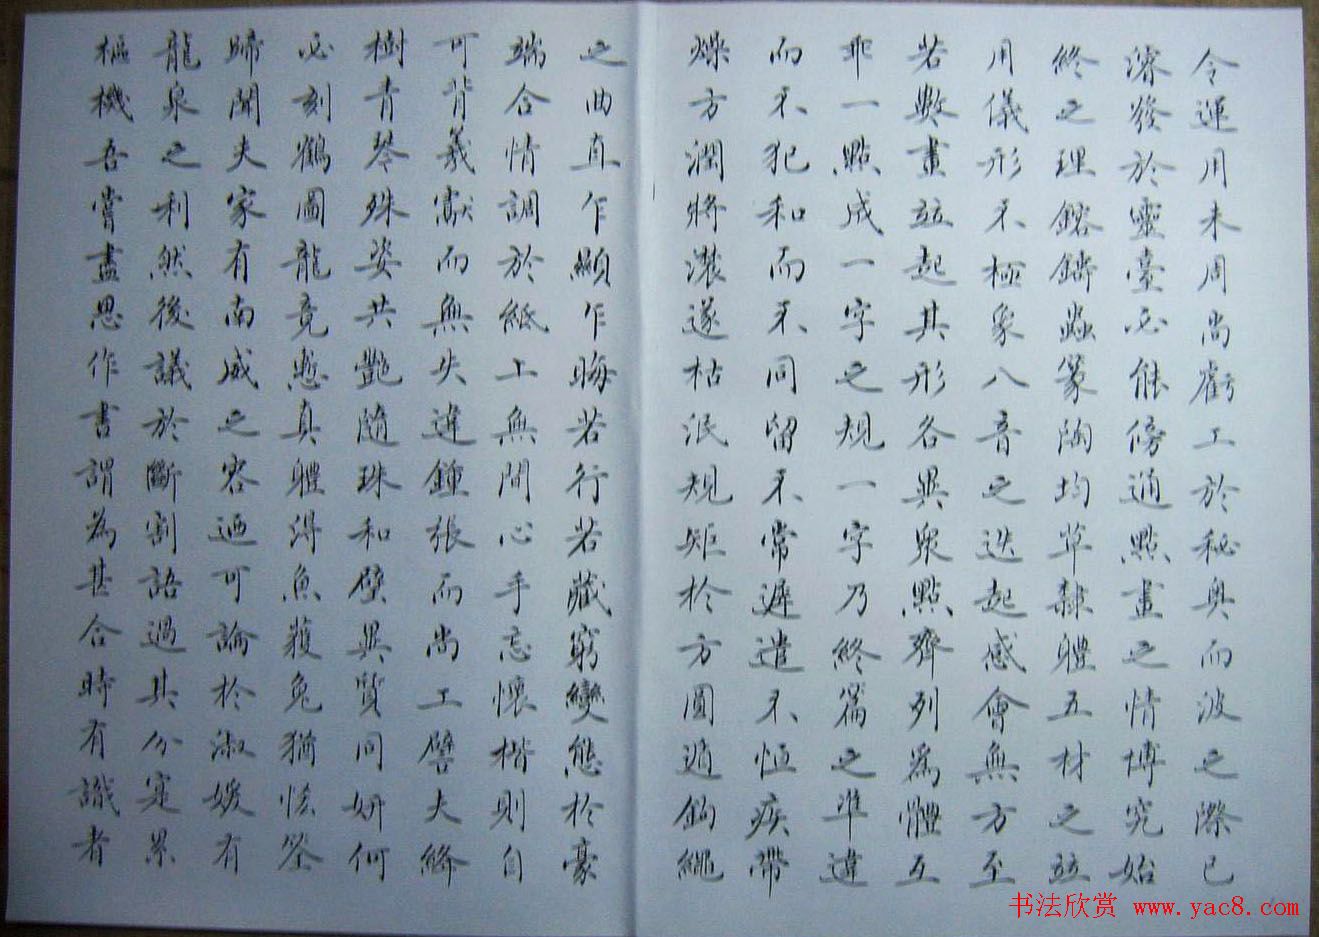 令運用未周尚虧工於秘奥而波之際已
濬發於靈臺必能傍通點畫之情博究始
終之理鎔鑄蟲篆陶均草隸體五材之竝
用儀形不極象八音之迭起感會無方至
若數畫竝起其形各異衆點齊列爲體互
乖一點成一字之規一字乃終篇之準違
而不犯和而不同留不常遲遣不恒疾帶
燥方潤將濃遂枯泯規矩於方圓遁鉤繩
之曲直乍顯乍晦若行若藏窮變態於豪
端合情調於紙上無間心手忘懷楷則自
可背羲獻而無失違鍾張而尚工譬夫絳
樹青琴殊姿共艷隨珠和璧異質同妍何
必刻鶴圖龍竟慙真體得魚獲兔猶恡筌
蹄聞夫家有南威之容迺可論於淑媛有
龍泉之利然後議於斷割語過其分寔累
樞機吾嘗盡思作書謂為甚合時有識者
书法欣赏 www.yac8.com